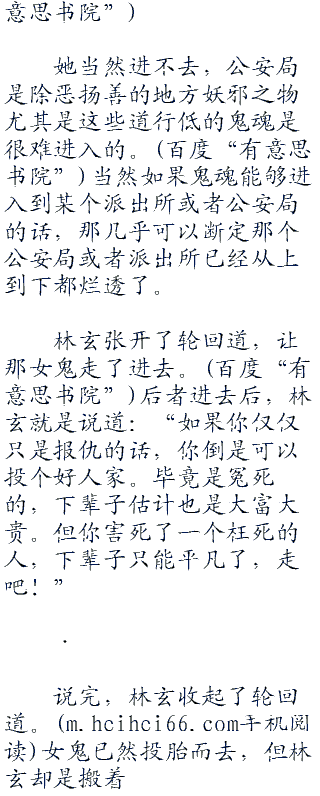 意思书院”)
她当然进不去，公安局
是除恶扬善的地方妖邪之物
尤其是这些道行低的鬼魂是
很难进入的。(百度“有意思
书院”)当然如果鬼魂能够进
入到某个派出所或者公安局
的话，那几乎可以断定那个
公安局或者派出所已经从上
到下都烂透了。
林玄张开了轮回道，让
那女鬼走了进去。(百度“有
意思书院”)后者进去后，林
玄就是说道：“如果你仅仅
只是报仇的话，你倒是可以
投个好人家。毕竟是冤死
的，下辈子估计也是大富大
贵。但你害死了一个枉死的
人，下辈子只能平凡了，走
吧！”
.
说完，林玄收起了轮回
道。(m.hcihci66.com手机阅
读)女鬼已然投胎而去，但林
玄却是搬着